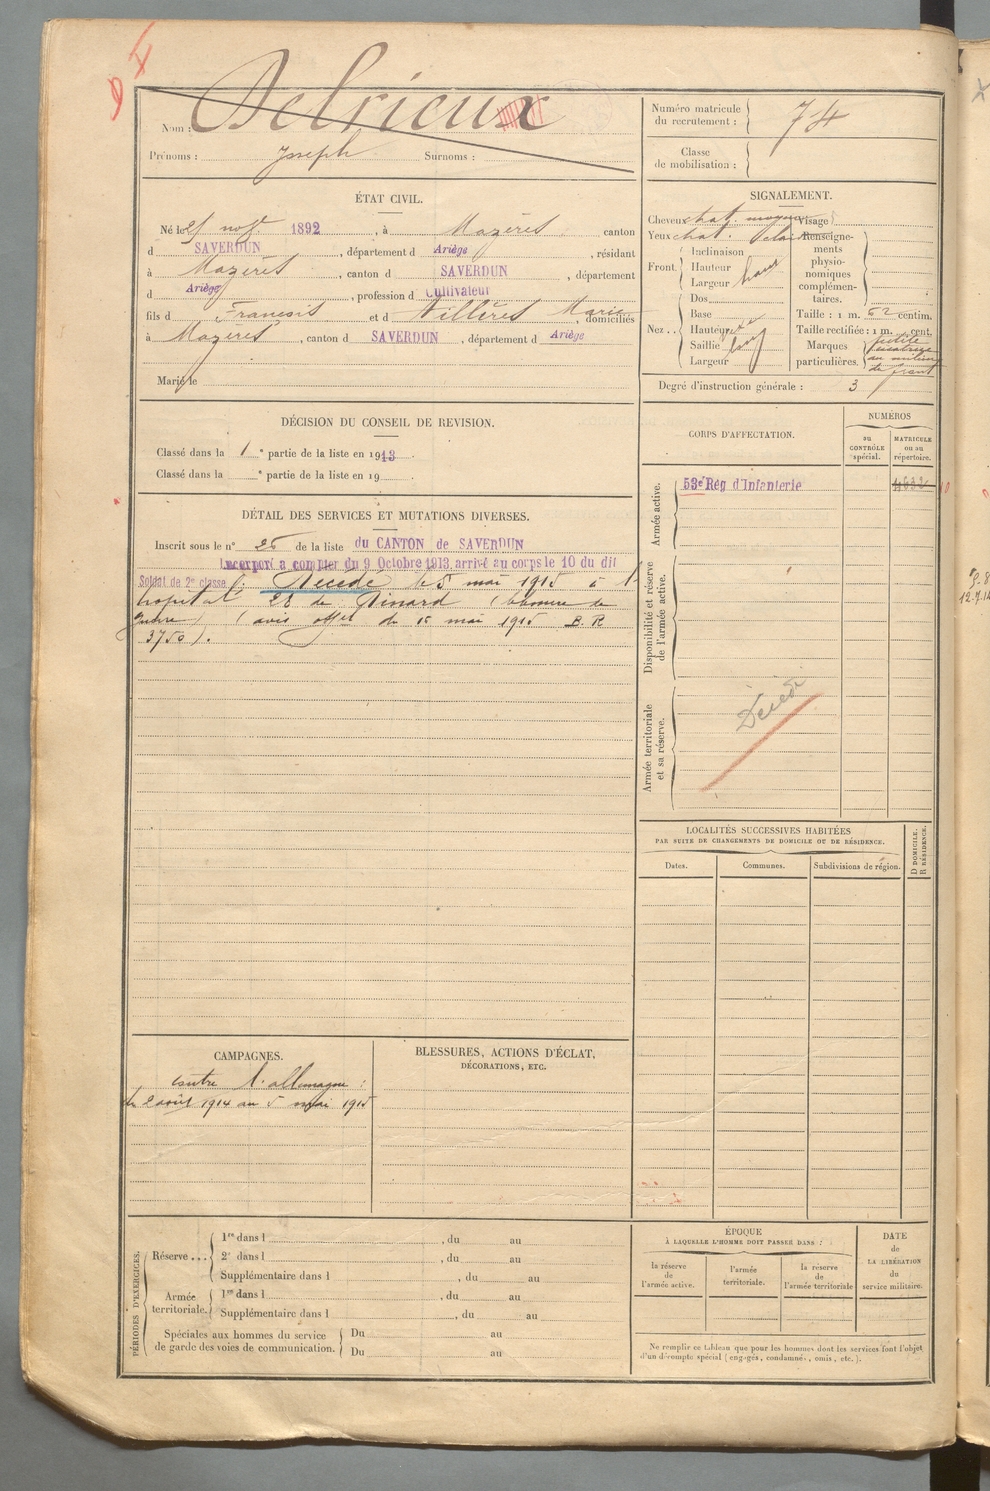 Nom : Delrieux
Prénoms : Joseph Surnoms :
Numéro matricule du recrutement : 74
Classe de mobilisation :
ÉTAT CIVIL.
Né le 25 nov. 1892, à Mazères canton
d SAVERDUN, département d Ariège, résidant
à Mazères, canton d SAVERDUN, département
d Ariège, profession d Cultivateur
fils d François et d Villères Marie domiciliés
à Mazères, canton d SAVERDUN, département d Ariège
Marié le
SIGNALEMENT.
Cheveux chat. moyen Visage
Yeux chat. clair Renseignements physionomiques complémentaires.
Front Inclinaison
Hauteur
Largeur
Nez.. Dos
Base
Hauteur
Saillie
Largeur
Taille : 1 m. 62 centim.
Taille rectifiée : 1 m. cent.
Marques particulières. petite cicatrice au milieu du front
Degré d'instruction générale : 3
DÉCISION DU CONSEIL DE REVISION.
Classé dans la 1e partie de la liste en 1913.
Classé dans la e partie de la liste en 19 .
CORPS D'AFFECTATION.
NUMÉROS
au CONTRÔLE spécial.
MATRICULE ou au répertoire.
Armée active.
53e Rég d'Infanterie 4632
Disponibilité et réserve de l'armée active.
Armée territoriale et sa réserve.
Décédé
DÉTAIL DES SERVICES ET MUTATIONS DIVERSES.
Inscrit sous le n° 25 de la liste du CANTON de SAVERDUN
Incorporé à compter du 9 Octobre 1913, arrivé au corps le 10 du dit
Soldat de 2e classe. Décédé le 5 mai 1915 à l'
hopital 28 de Dinard (blessure de
guerre) (avis offel du 15 mai 1915 B.R
3750).
LOCALITÉS SUCCESSIVES HABITÉES
PAR SUITE DE CHANGEMENTS DE DOMICILE OU DE RÉSIDENCE.
Dates. Communes. Subdivisions de région. D DOMICILE. R RÉSIDENCE.
CAMPAGNES.
contre l'allemagne :
du 2 août 1914 au 5 mai 1915
BLESSURES, ACTIONS D'ÉCLAT,
DÉCORATIONS, ETC.
PÉRIODES D'EXERCICES.
Réserve ... 1re dans l , du au
2e dans l , du au
Supplémentaire dans l , du au
Armée territoriale. 1re dans l , du au
Supplémentaire dans l , du au
Spéciales aux hommes du service de garde des voies de communication. Du au
Du au
ÉPOQUE
À LAQUELLE L'HOMME DOIT PASSER DANS :
la réserve de l'armée active.
l'armée territoriale.
la réserve de l'armée territoriale
DATE de LA LIBÉRATION du service militaire.
Ne remplir ce tableau que pour les hommes dont les services font l'objet
d'un décompte spécial (engagés, condamnés, omis, etc.).